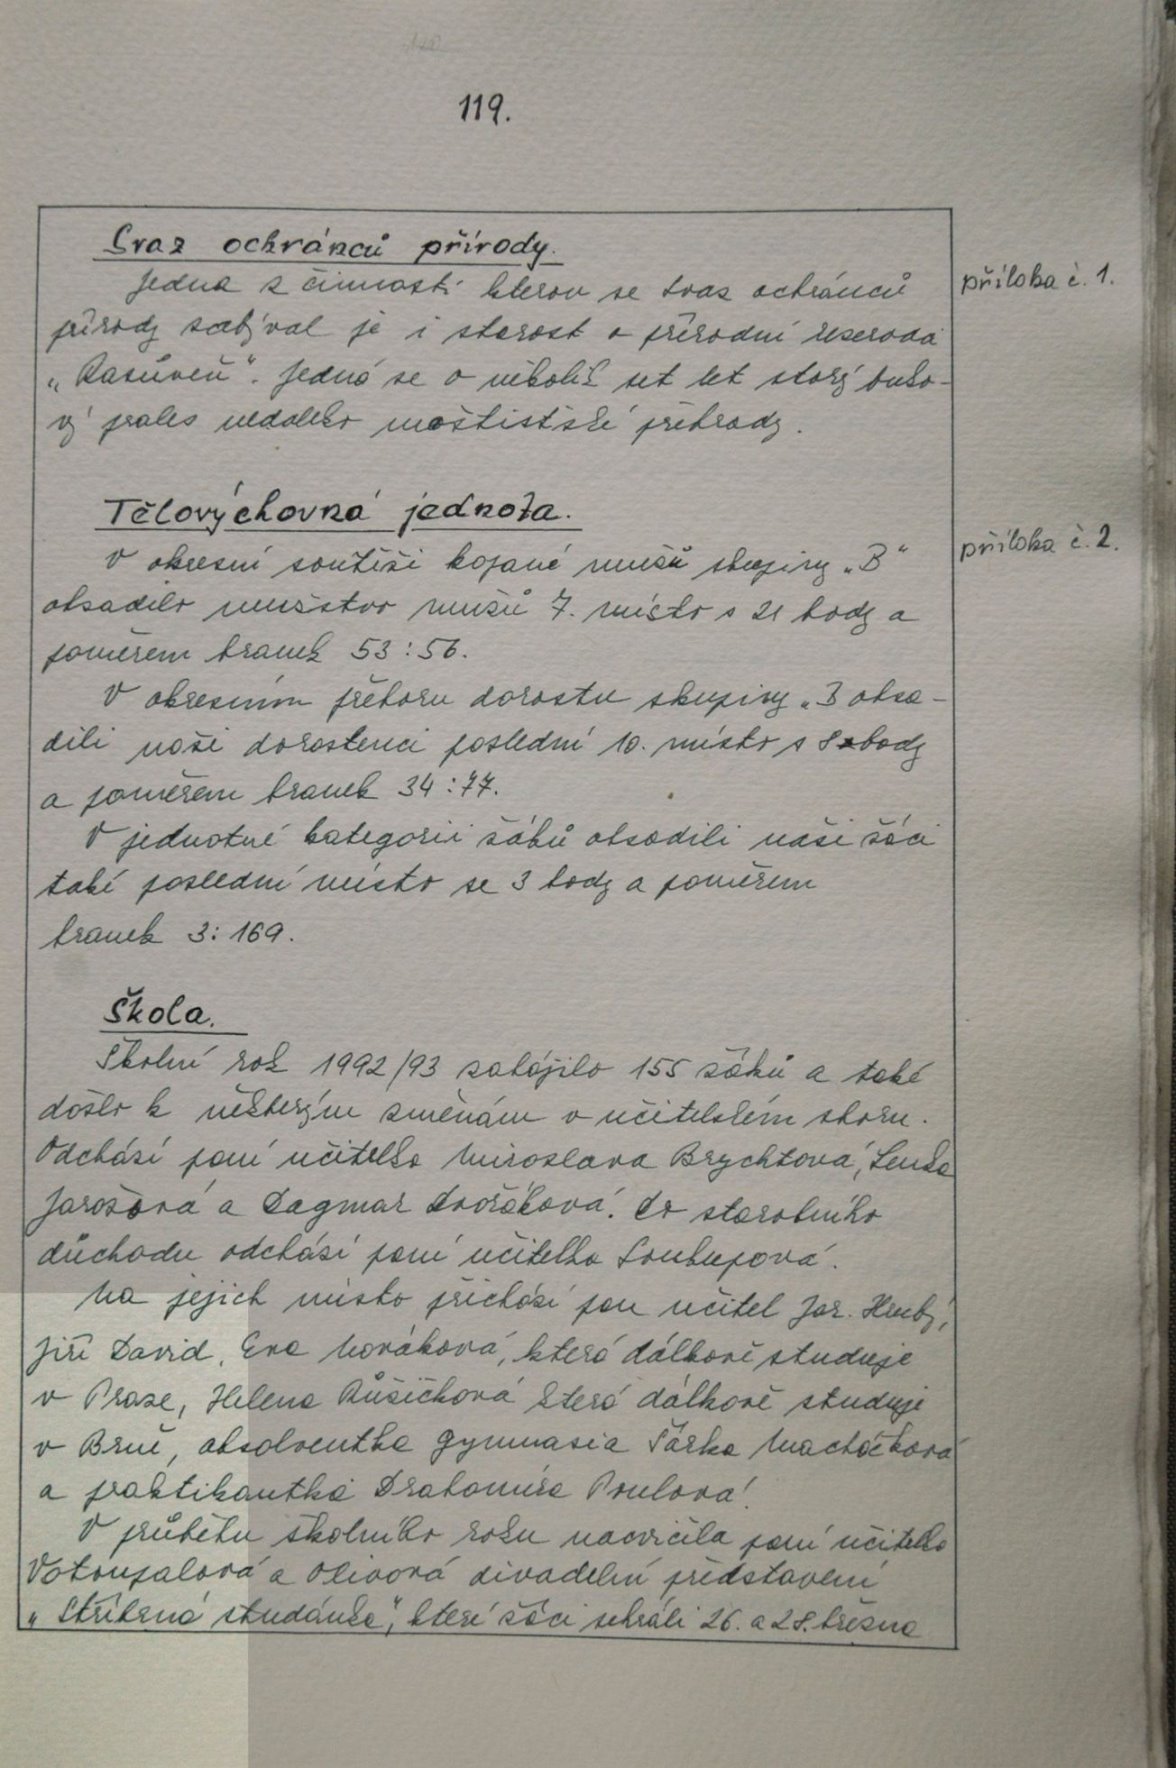 119.
Svaz ochránců přírody.
příloha č. 1.
Jedna z činností kterou se svaz ochránců
přírody zabýval je i starost o přírodní reservaci
„Rasůveň“. Jedná se o několik set let starý buko-
vý prales nedaleko mostištské přehrady.
Tělovýchovná jednota.
příloha č. 2.
V okresní soutěži kopané mužů skupiny „B“
obsadilo mužstvo mužů 7. místo s 21 body a
poměrem branek 53:56.
V okresním přeboru dorostu skupiny „B obsa-
dili naši dorostenci poslední 10. místo s 8 body
a poměrem branek 34:77.
V jednotné kategorii žáků obsadili naši žáci
také poslední místo se 3 body a poměrem
branek 3:169.
Škola.
Školní rok 1992/93 zahájilo 155 žáků a také
došlo k některým změnám v učitelském sboru.
Odchází paní učitelka Miroslava Brychtová, Lenka
Jarošová a Dagmar Dvořáková. Do starobního
důchodu odchází paní učitelka Soukupová.
Na jejich místo přichází pan učitel Jar. Hrubý,
Jiří David, Eva Nováková, která dálkově studuje
v Praze, Helena Růžičková která dálkově studuje
v Brně, absolventka gymnasia Šárka Macháčková
a praktikantka Drahomíra Poulová.
V průběhu školního roku nacvičila paní učitelka
Votoupalová a Olivová divadelní představení
„Stříbrná studánka“, které žáci sehráli 26. a 28. března